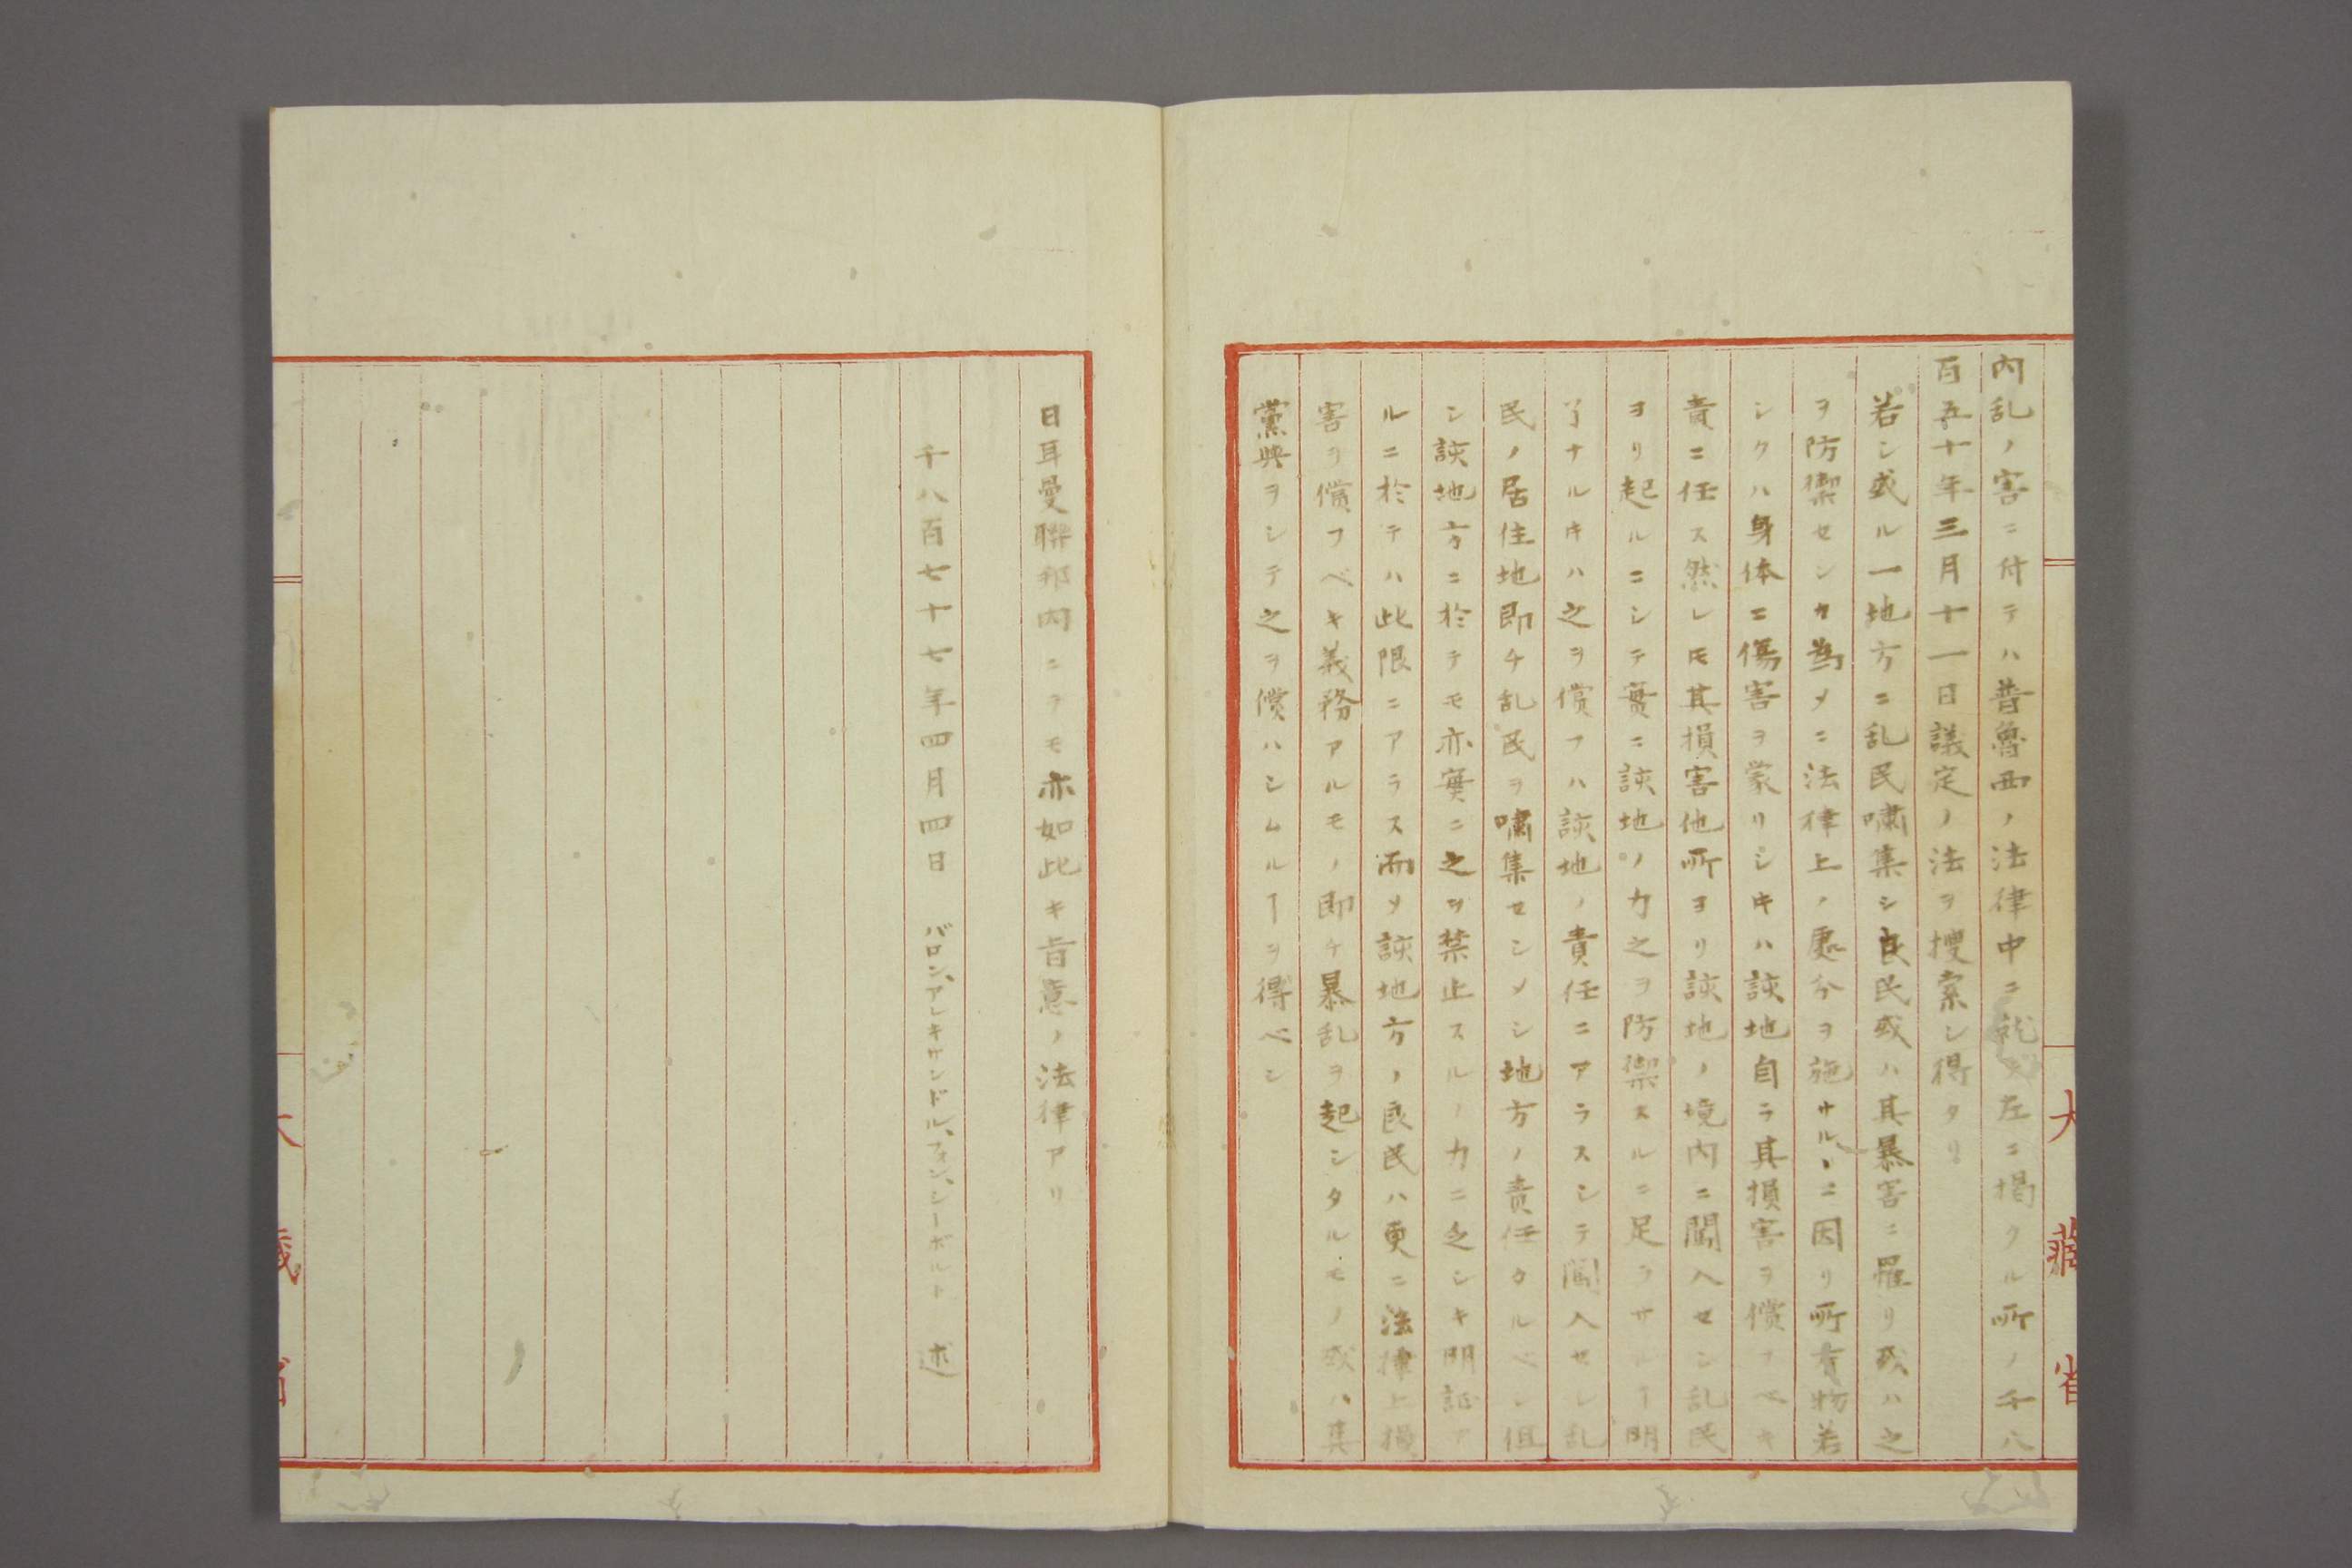 内乱ノ害ニ付テハ普魯西ノ法律中ニ就テ左ニ掲クル所ノ千八
百五十年三月十一日議定ノ法ヲ搜索シ得タリ
若シ或ル一地方ニ乱民嘯集シ良民或ハ其暴害ニ罹リ或ハ之
ヲ防禦センカ為メニ法律上ノ處分ヲ施サルヽニ因リ所有物若
シクハ身体ニ傷害ヲ蒙リシキハ該地自ラ其損害ヲ償フベキ
責ニ任ス然レ𪜈其損害他所ヨリ該地ノ境内ニ闖入セシ乱民
ヨリ起ルニシテ實ニ該地ノ力之ヲ防禦スルニ足ラサルヿ明
了ナルキハ之ヲ償フハ該地ノ責任ニアラスシテ闖入セシ乱
民ノ居住地即チ乱民ヲ嘯集セシメシ地方ノ責任タルベシ但
シ該地方ニ於テモ亦實ニ之ヲ禁止スルノ力ニ乏シキ明証ア
ルニ於テハ此限ニアラス而メ該地方ノ良民ハ更ニ法律上損
害ヲ償フベキ義務アルモノ即チ暴乱ヲ起シタルモノ或ハ其
黨與ヲシテ之ヲ償ハシムルヿヲ得ベシ
大藏省
日耳曼聯邦内ニヲモ亦如此キ旨意ノ法律アリ
千八百七十七年四月四日 バロン、アレキサンドル、フォン、シーボルト 述